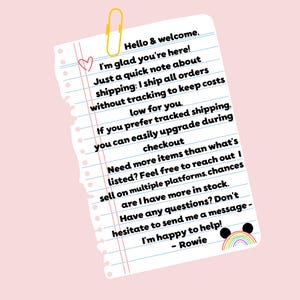 Hello & welcome,
I'm glad you're here!
Just a quick note about
shipping: I ship all orders
without tracking to keep costs
low for you.
If you prefer tracked shipping,
you can easily upgrade during
checkout
Need more items than what's
listed? Feel free to reach out I
sell on multiple platforms chances
are I have more in stock.
Have any questions? Don't
hesitate to send me a message -
I'm happy to help!
~ Rowie